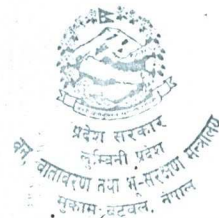 प्रदेश सरकार
लुम्बिनी प्रदेश
वन, वातावरण तथा भू-संरक्षण मन्त्रालय
मुकाम-बुटवल, नेपाल